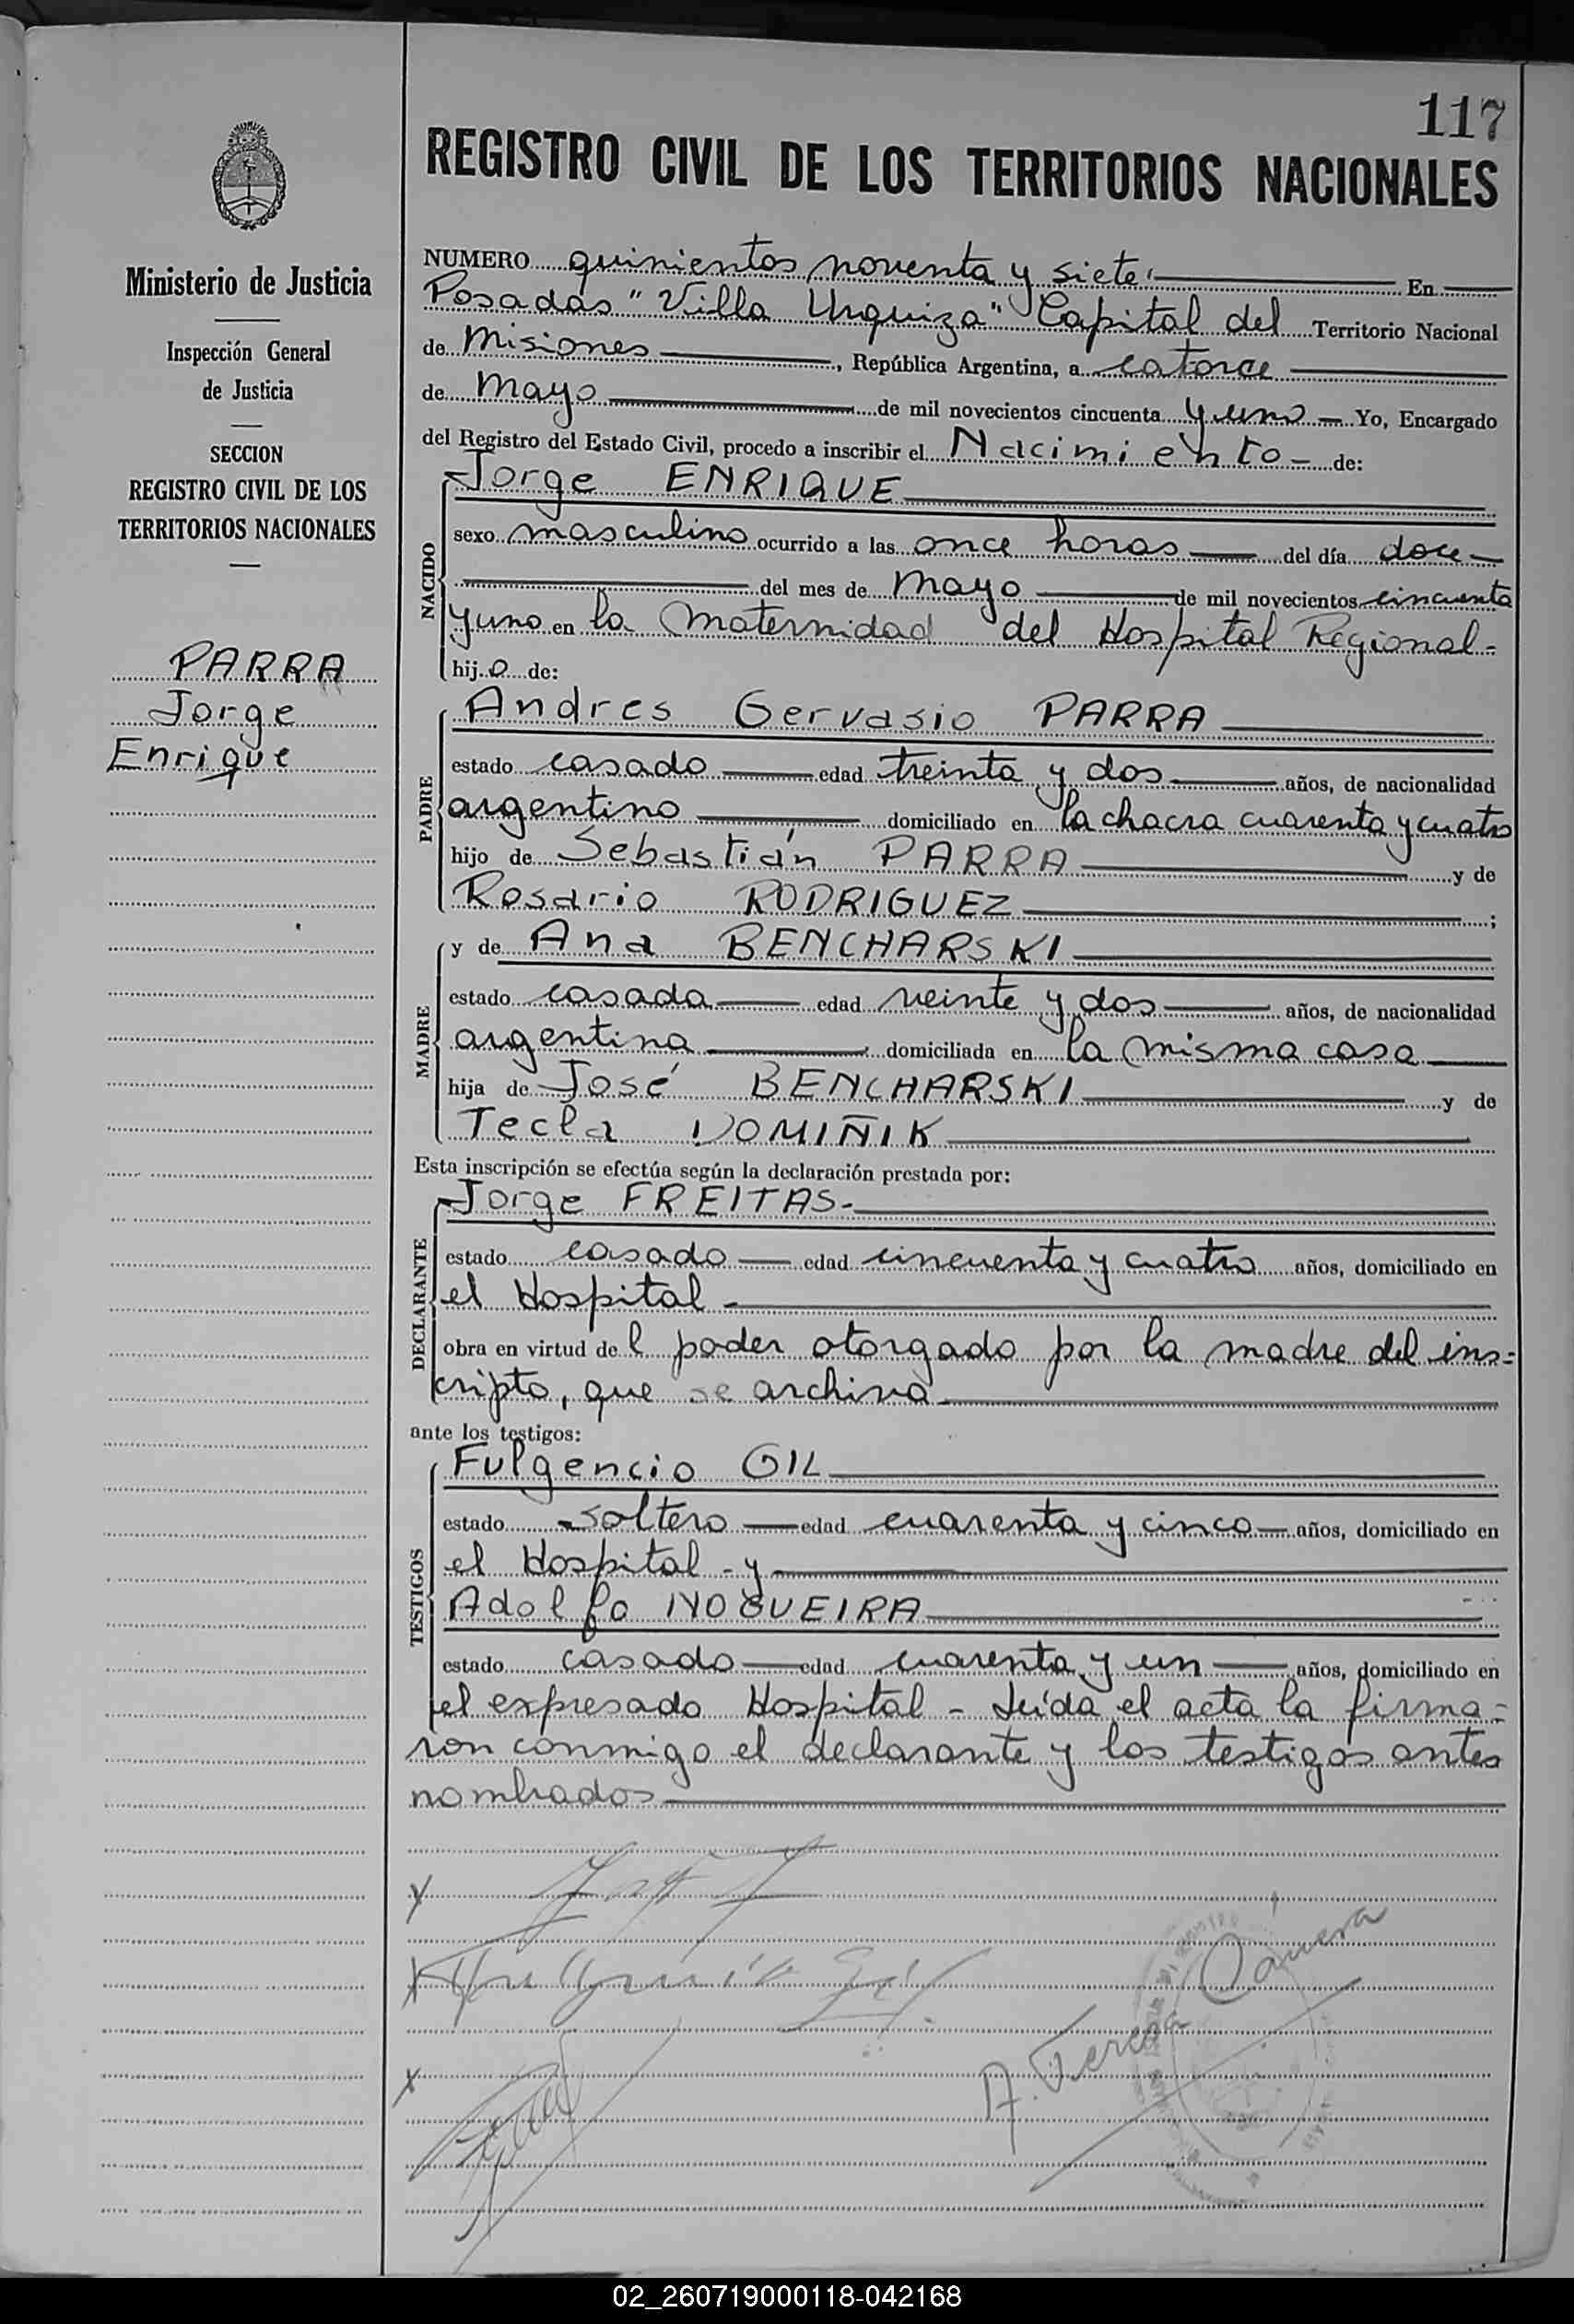 117
REGISTRO CIVIL DE LOS TERRITORIOS NACIONALES
Ministerio de Justicia
Inspección General
de Justicia
SECCION
REGISTRO CIVIL DE LOS
TERRITORIOS NACIONALES
PARRA
Jorge
Enrique
NUMERO quinientos noventa y siete. En
Posadas "Villa Urquiza" Capital del Territorio Nacional
de Misiones, República Argentina, a catorce
de Mayo de mil novecientos cincuenta y uno Yo, Encargado
del Registro del Estado Civil, procedo a inscribir el Nacimiento de:
NACIDO
Jorge ENRIQUE
sexo masculino ocurrido a las once horas del día doce
del mes de Mayo de mil novecientos cincuenta
y uno en la Maternidad del Hospital Regional.
hijo de:
PADRE
Andres Gervasio PARRA
estado casado edad treinta y dos años, de nacionalidad
argentino domiciliado en la chacra cuarenta y cuatro
hijo de Sebastián PARRA y de
Rosario RODRIGUEZ;
MADRE
y de Ana BENCHARSKI
estado casada edad veinte y dos años, de nacionalidad
argentina domiciliada en la misma casa
hija de José BENCHARSKI y de
Tecla DOMIÑIK
Esta inscripción se efectúa según la declaración prestada por:
DECLARANTE
Jorge FREITAS.
estado casado edad cincuenta y cuatro años, domiciliado en
el Hospital
obra en virtud del poder otorgado por la madre del ins=
cripto, que se archiva
ante los testigos:
TESTIGOS
Fulgencio GIL
estado soltero edad cuarenta y cinco años, domiciliado en
el Hospital - y
Adolfo NOGUEIRA
estado casado edad cuarenta y un años, domiciliado en
el expresado Hospital - Leída el acta la firma=
ron conmigo el declarante y los testigos antes
nombrados
A. Teresa Cámera
02_260719000118-042168